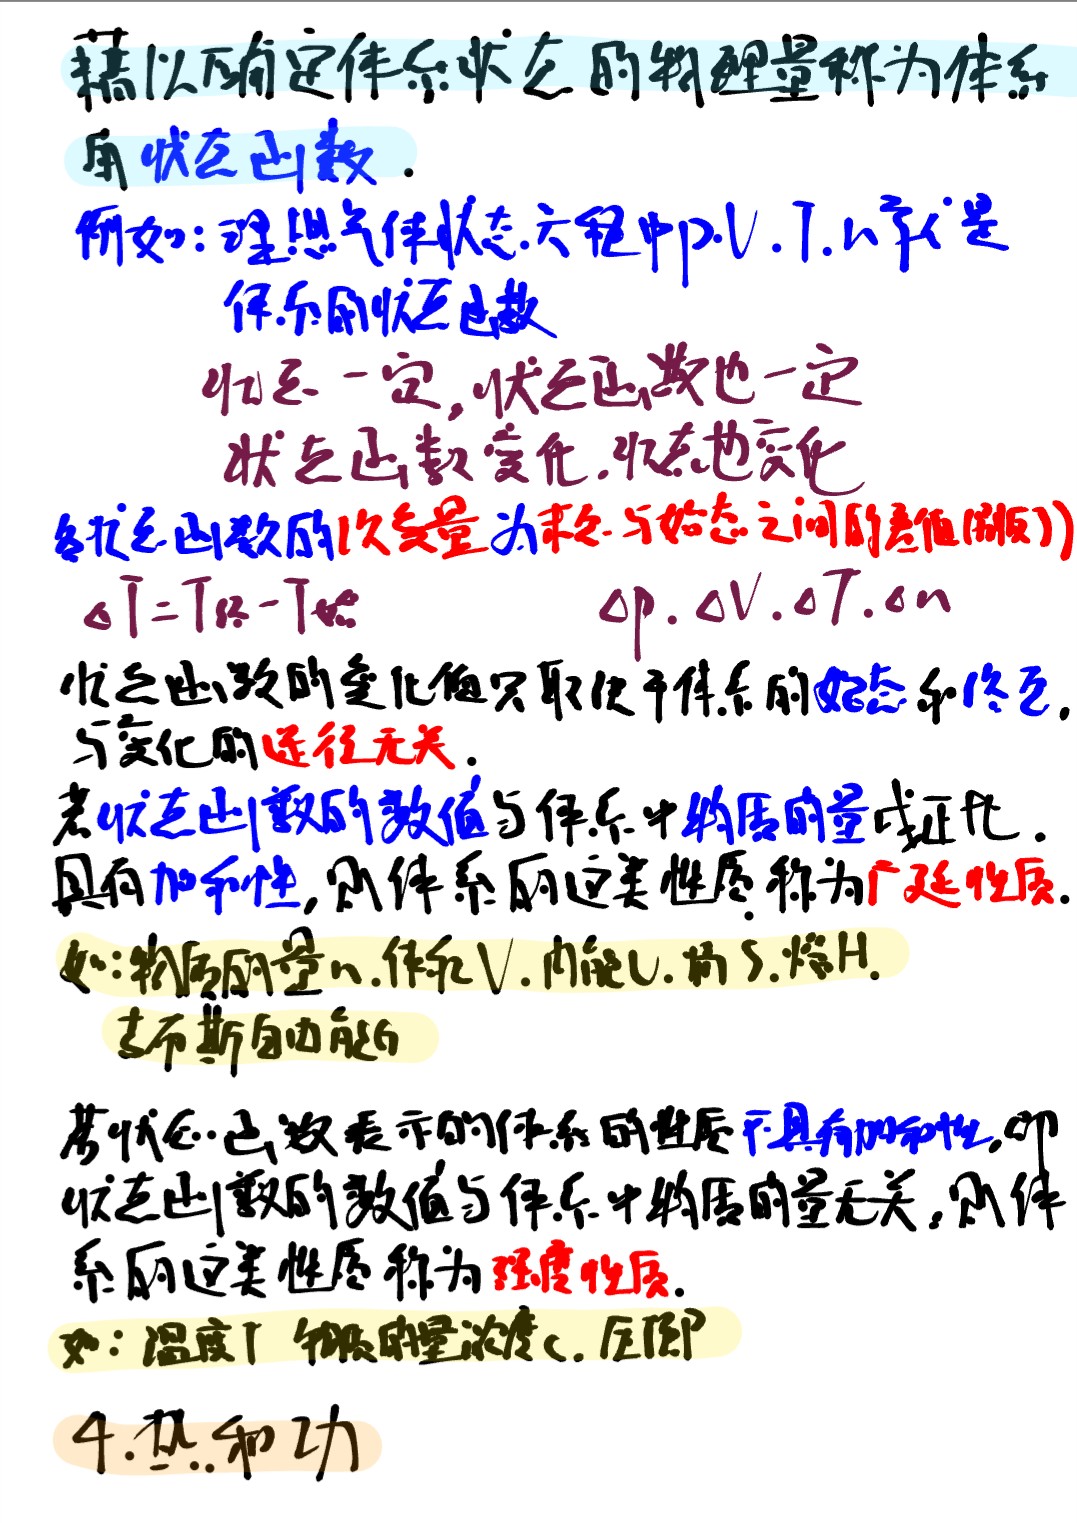 藉以确定体系状态的物理量称为体系
的状态函数.
例如:理想气体状态方程中p.V.T.n等就是
体系的状态函数
状态一定,状态函数也一定
状态函数变化.状态也变化
各状态函数的改变量为末态与始态之间的差值
ΔT=T终-T始 Δp.ΔV.ΔT.Δn
状态函数的变化值只取决于体系的始态和终态,
与变化的途径无关.
若状态函数的数值与体系中物质的量成正比.
具有加和性,则体系的这类性质称为广延性质.
如:物质的量n.体积V.内能U.熵S.焓H.
吉布斯自由能G
若状态函数表示的体系的性质不具有加和性,即
状态函数的数值与体系中物质的量无关,则体
系的这类性质称为强度性质.
如:温度T 物质的量浓度c.压强P
4.热和功